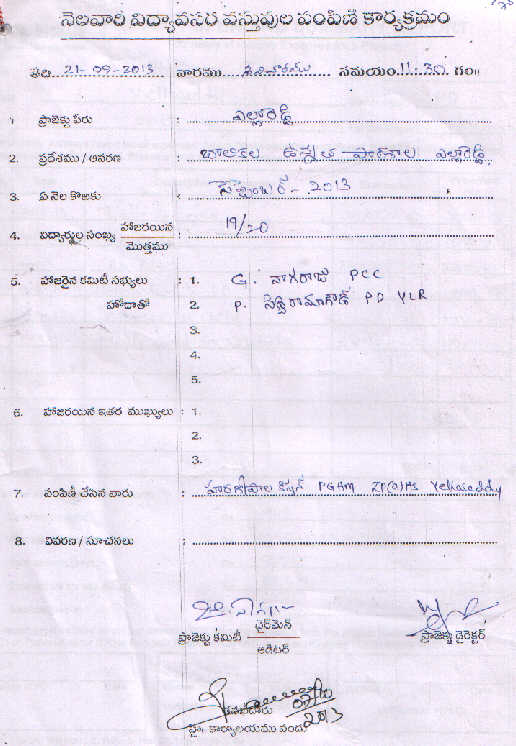 నెలవారీ విద్యావసర వస్తువుల పంపిణీ కార్యక్రమం
తేది. 21-09-2013 వారము శనివారము సమయం.11.30 గం॥
1 ప్రాజెక్టు పేరు : ఎల్లారెడ్డి
2. ప్రదేశము / ఆవరణ : బాలికల ఉన్నత పాఠశాల ఎల్లారెడ్డి
3. ఏ నెల కొఱకు : సెప్టెంబర్ - 2013
4. విద్యార్థుల సంఖ్య హాజరయిన / మొత్తము : 19/20
5. హాజరైన కమిటీ సభ్యులు : 1. G. నాగరాజు PCC
హోదాతో 2. P. PD YLR
3.
4.
5.
6. హాజరయిన ఇతర ముఖ్యులు : 1.
2.
3.
7. పంపిణీ చేసిన వారు : PGHM ZP(G)HS Yellareddy
8. వివరణ / సూచనలు :
ప్రాజెక్టు కమిటీ చైర్‌మెన్ / ఆడిటర్ ప్రాజెక్టు డైరెక్టర్
2013
కార్యాలయము నందు